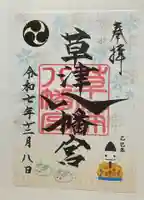 奉拝
草津八幡宮
令和七年十二月八日
乙巳年